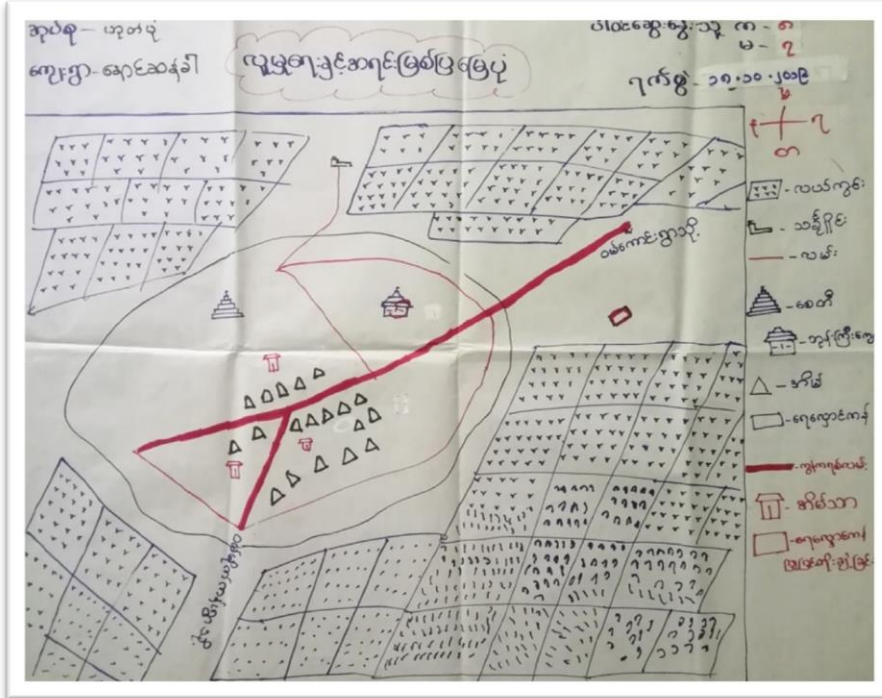 အုပ်စု - ဟုတပုံ
ကျေးရွာ - နောင်ဆန်ခါ
လူမှုရေးနှင့်အရင်းမြစ်ပြမြေပုံ
ပါဝင်ဆွေးနွေးသူ ကျ - ၈
မ - ၃
ရက်စွဲ - ၁၈.၁၀.၂၀၁၉
- လယ်ကွင်း
- သင်္ချိုင်း
- လမ်း
- စေတီ
- ဘုန်းကြီးကျောင်း
- အိမ်
- ရေလှောင်ကန်
- ကွန်ကရစ်လမ်း
- အိမ်သာ
- ရေလှောင်ကန်
ပြုပြင်တိုးချဲ့ခြင်း
ဝမ်ကောင်းရွာသို့